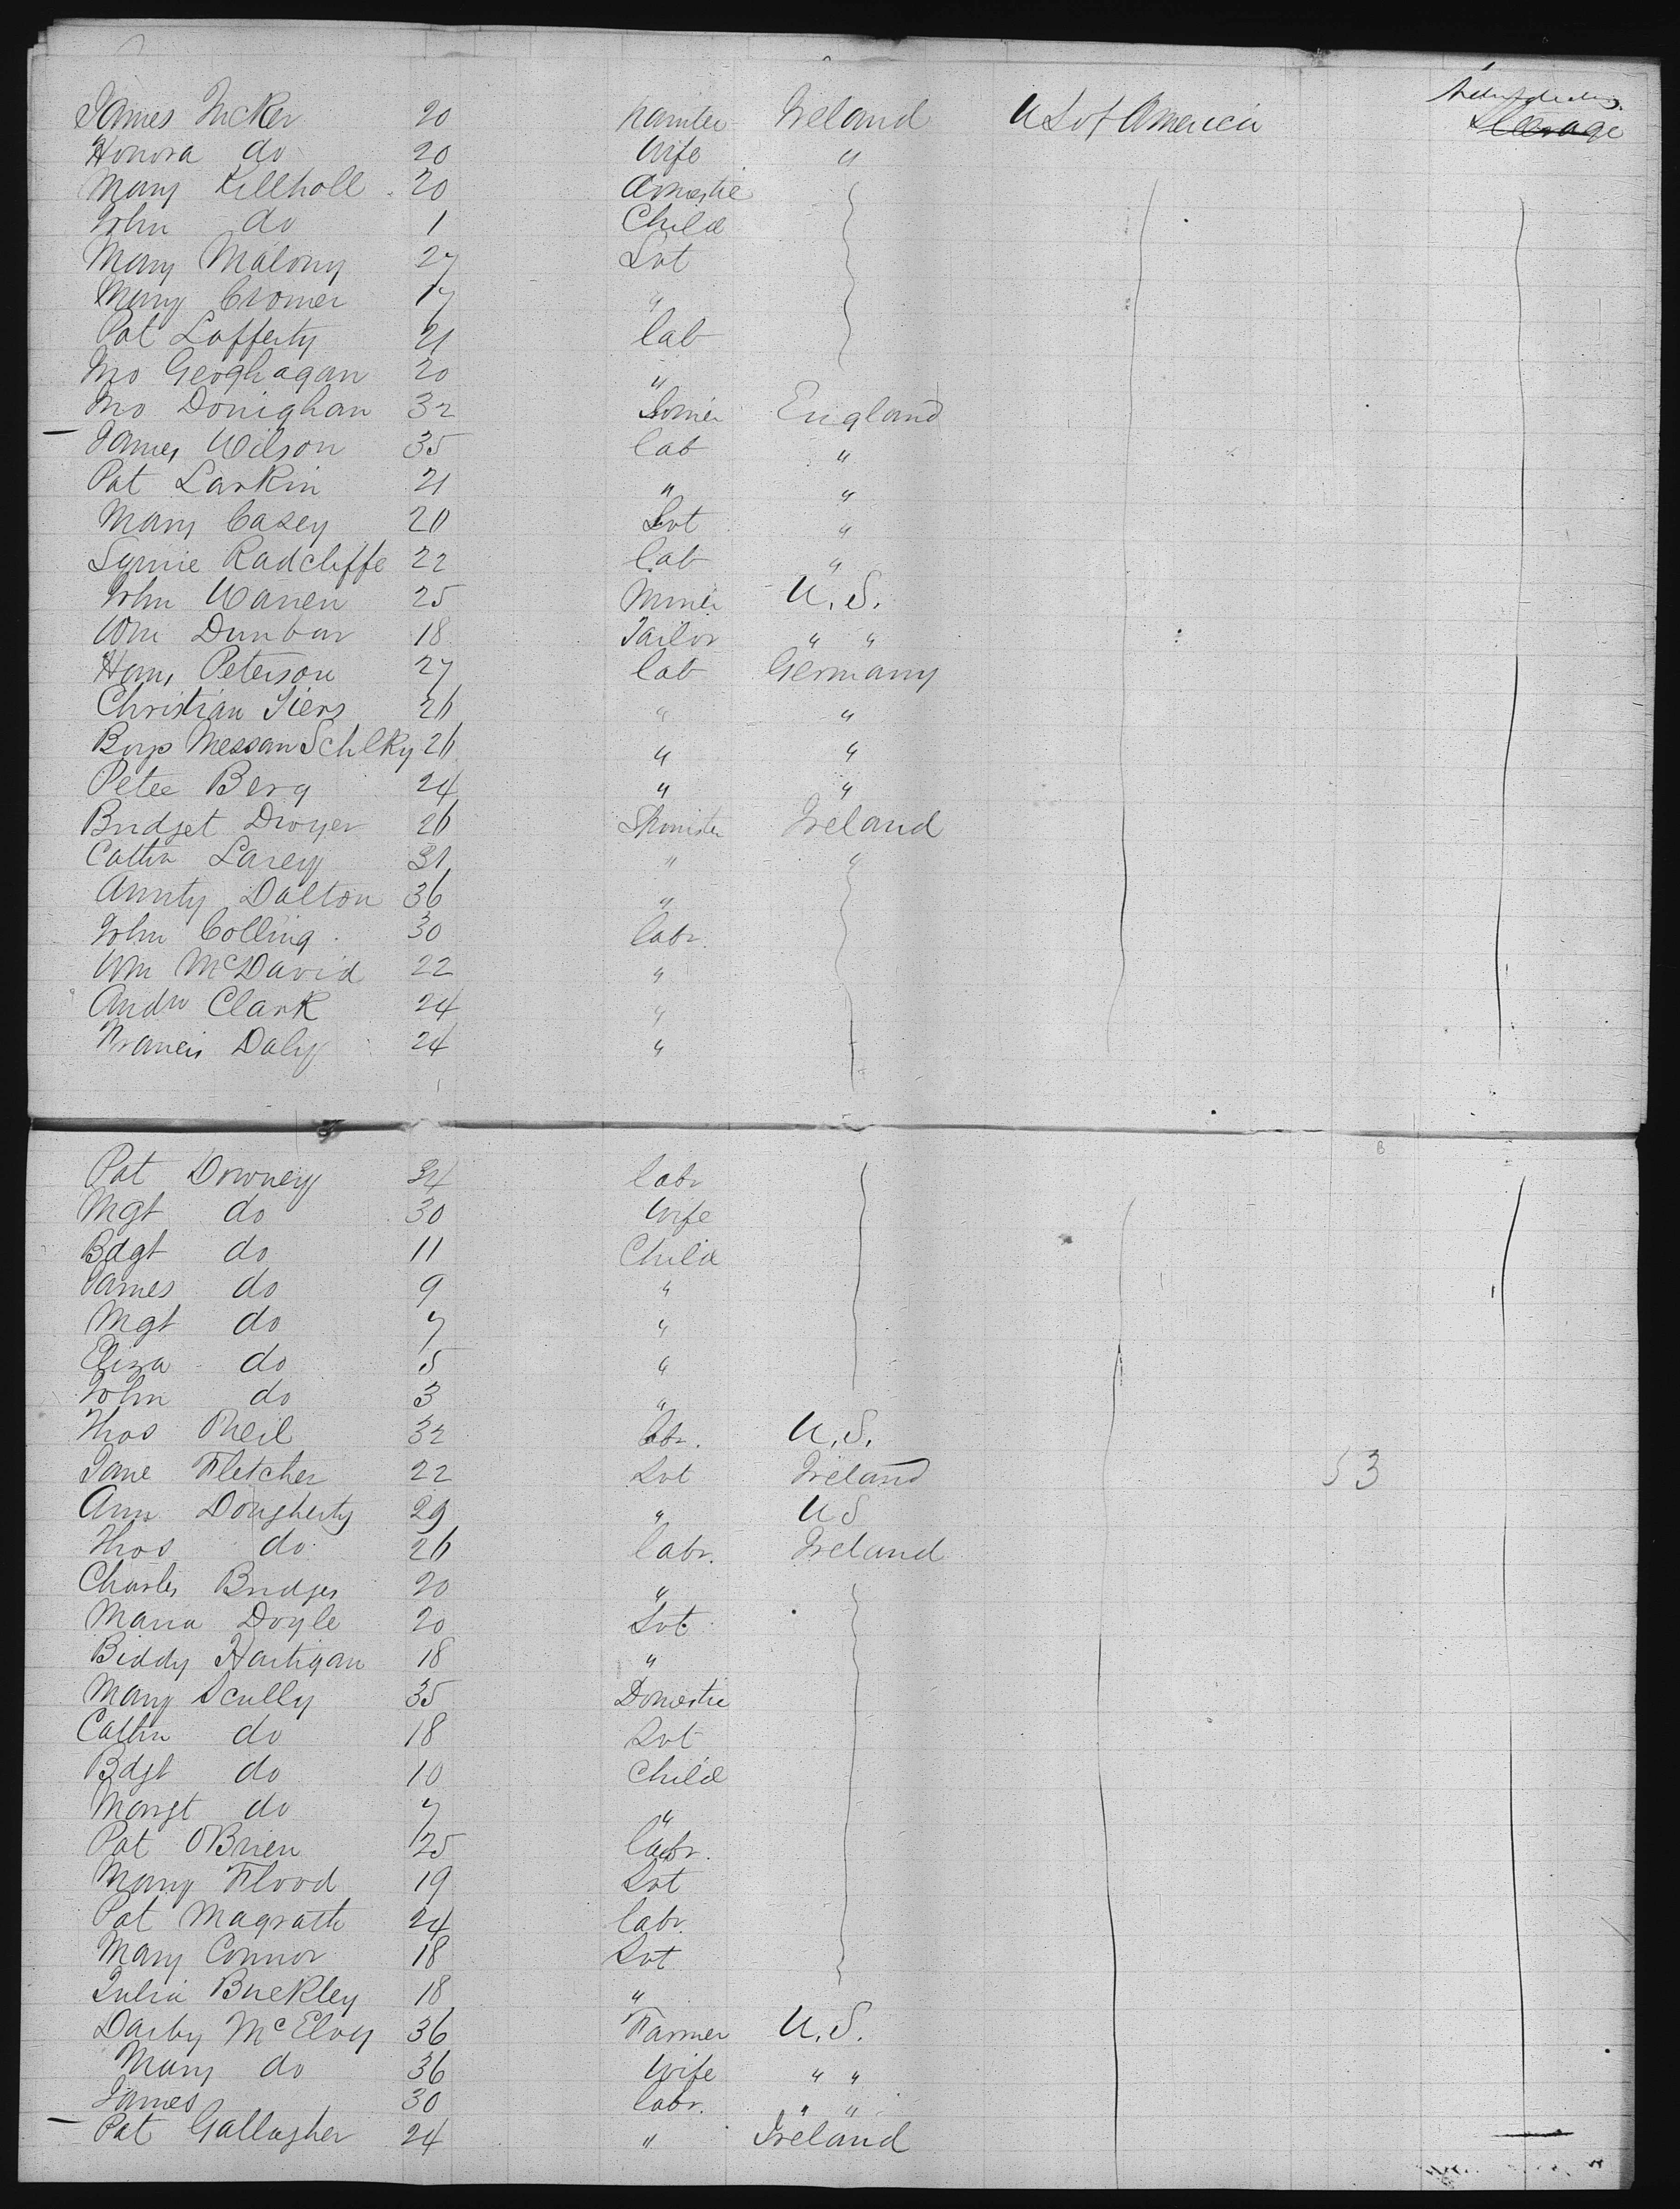 James Tucker 20 painter Ireland U S of America
Steerage
Honora do 20 Wife "
Mary Killholl 20 domestic
John do 1 Child
Mary Malony 27 Svt
Mary Cromer 17 "
Pat Lafferty 21 lab
Jno Geoghagan 20 "
Jno Donighan 32 England
James Wilson 35 lab "
Pat Larkin 21 " "
Mary Casey 20 Svt "
Radcliffe 22 lab "
John Warren 25 Miner U.S.
Wm Dunbar 18 Tailor " "
Hans Peterson 27 lab Germany
Christian Siers 26 " "
26 " "
Peter Berg 24 " "
Bridget Dwyer 26 Spinster Ireland
Cathn Larey 31 " "
Dalton 36 "
John Colling 30 labr.
Wm McDavid 22 "
Andw Clark 24 "
Francis Daly 24 "
B
Pat Downey 34 labr
Mgt do 30 Wife
Bdgt do 11 Child
James do 9 "
Mgt do 7 "
Eliza do 5 "
John do 3 "
Thos ONeil 32 labr. U.S.
Jane Fletcher 22 Svt Ireland 53
Ann Dougherty 29 " U S
Thos do 26 labr. Ireland
Charles Bridges 20 "
Maria Doyle 20 Svt
Biddy Hartigan 18 "
Mary Scully 35 Domestic
Cathn do 18 Svt
Bdgt do 10 Child
Margt do 7 "
Pat OBrien 25 labr.
Mary Flood 19 Svt
Pat Magrath 24 labr.
Mary Connor 18 Svt
Julia Buckley 18 "
Darby McElvoy 36 Farmer U.S.
Mary do 36 Wife " "
James 30 labr. " "
Pat Gallagher 24 " Ireland